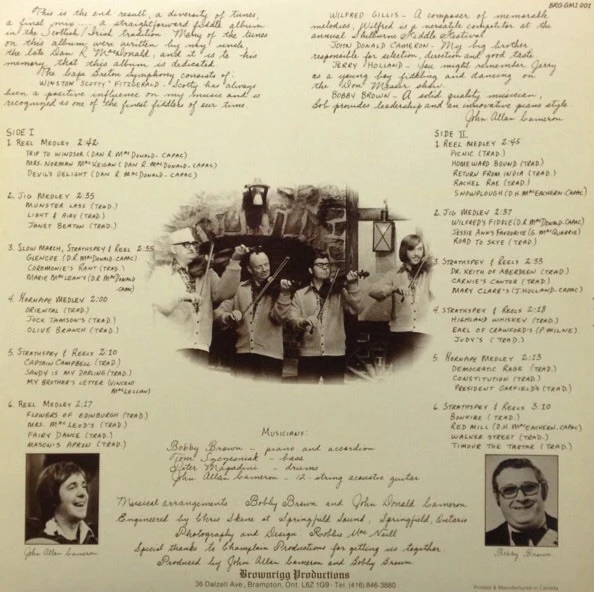 BRG GM2 001
This is the end result, a diversity of tunes,
a final mix.... a straightforward fiddle album
in the Scottish/Irish tradition. Many of the tunes
on this album were written by my uncle,
the late Dan R. MacDonald, and it is to his
memory that this album is dedicated.
The Cape Breton Symphony consists of:
WINSTON "SCOTTY" FITZGERALD - Scotty has always
been a positive influence on my music and is
recognized as one of the finest fiddlers of our time.
WILFRED GILLIS - A composer of memorable
melodies, Wilfred is a versatile competitor at the
annual Shelburne Fiddle Festival.
JOHN DONALD CAMERON - My big brother
responsible for selection, direction and good taste.
JERRY HOLLAND - You might remember Jerry
as a young boy fiddling and dancing on
the "Don Messer show.
BOBBY BROWN - A solid quality musician,
Bob provides leadership and an innovative piano style.
John Allan Cameron
SIDE I
1. REEL MEDLEY 2:42
TRIP TO WINDSOR (DAN R. MacDONALD - CAPAC)
MRS. NORMAN MacKEIGAN (DAN R. MacDONALD - CAPAC)
DEVILS DELIGHT (DAN R. MacDONALD - CAPAC)
2. JIG MEDLEY 2:35
MUNSTER LASS (TRAD.)
LIGHT & AIRY (TRAD.)
JANET BEATON (TRAD.)
3. SLOW MARCH, STRATHSPEY & REEL 2:55
GLENCOE (D.R. MacDONALD - CAPAC)
COREMONIE'S RANT (TRAD.)
MARIE MacLEAN'S (D.R. MacDONALD - CAPAC)
4. HORNPIPE MEDLEY 2:00
ORIENTAL (TRAD.)
JOCK TAMSON'S (TRAD.)
OLIVE BRANCH (TRAD.)
5. STRATHSPEY & REELS 2:20
CAPTAIN CAMPBELL (TRAD.)
SANDY IS MY DARLING (TRAD.)
MY BROTHER'S LETTER (VINCENT MacLELLAN)
6. REEL MEDLEY 2:27
FLOWERS OF EDINBURGH (TRAD.)
MRS. MacLEOD'S (TRAD.)
FAIRY DANCE (TRAD.)
MASON'S APRON (TRAD.)
SIDE II
1. REEL MEDLEY 2:45
PICNIC (TRAD.)
HOMEWARD BOUND (TRAD.)
RETURN FROM INDIA (TRAD.)
RACHEL RAE (TRAD.)
SNOWPLOUGH (D.H. MacEACHERN - CAPAC)
2. JIG MEDLEY 2:37
WILFRED'S FIDDLE (D.R. MacDONALD - CAPAC)
JESSIE ANN'S FAVOURITE (G. MacQUARRIE)
ROAD TO SKYE (TRAD.)
3. STRATHSPEY & REELS 2:33
DR. KEITH OF ABERDEEN (TRAD.)
CARNIE'S CANTOR (TRAD.)
MARY CLARE'S (J. HOLLAND - CAPAC)
4. STRATHSPEY & REELS 2:28
HIGHLAND WHISKEY (TRAD.)
EARL OF CRAWFORD'S (P. MILNE)
JUDY'S (TRAD.)
5. HORNPIPE MEDLEY 2:23
DEMOCRATIC RAGE (TRAD.)
CONSTITUTION (TRAD.)
PRESIDENT GARFIELD'S (TRAD.)
6. STRATHSPEY & REELS 3:20
BONFIRE (TRAD.)
RED MILL (D.H. MacEACHERN - CAPAC)
WALKER STREET (TRAD.)
TIMOUR THE TARTAR (TRAD.)
MUSICIANS:
Bobby Brown - piano and accordion
Tom Szczesniak - bass
Peter Magadini - drums
John Allan Cameron - 12 string acoustic guitar
Musical arrangements Bobby Brown and John Donald Cameron
Engineered by Chris Skene at Springfield Sound, Springfield, Ontario
Photography and Design Robbie MacNeill
Special thanks to Champlain Productions for getting us together
Produced by John Allan Cameron and Bobby Brown.
John Allan Cameron
Bobby Brown
Brownrigg Productions
36 Dalzell Ave., Brampton, Ont. L6Z 1G9 - Tel. (416) 846-3880
Printed & Manufactured in Canada